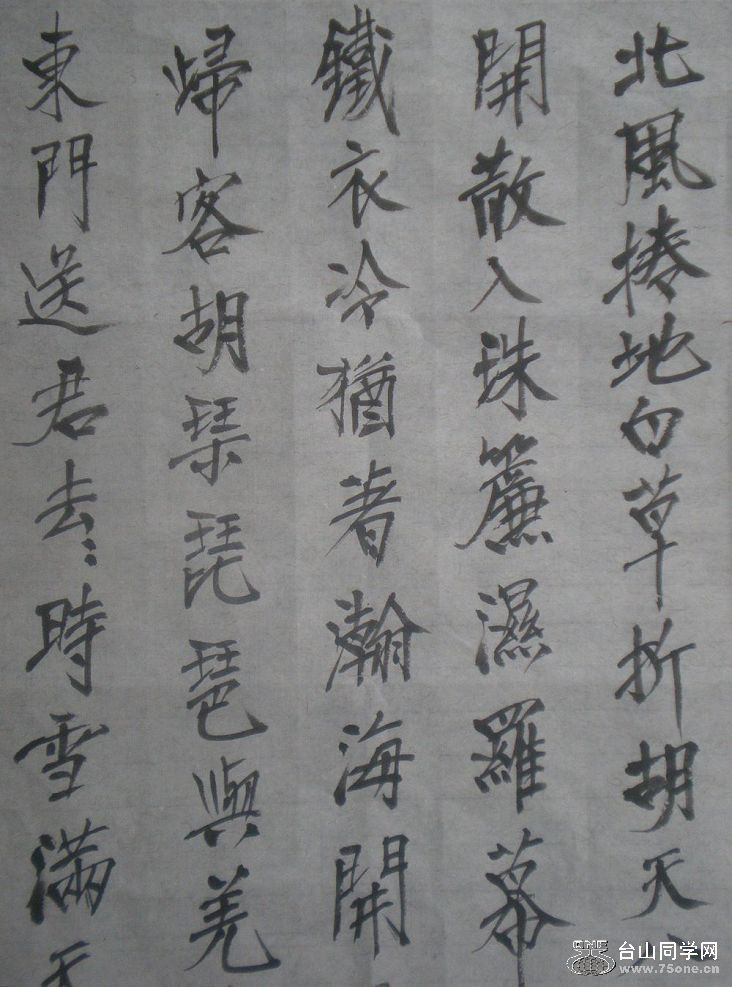 北風捲地白草折胡天八
開散入珠簾濕羅幕
鐵衣冷猶著瀚海開
歸客胡琴琵琶與羌
東門送君去〻時雪滿天
台山同学网
www.75one.cn